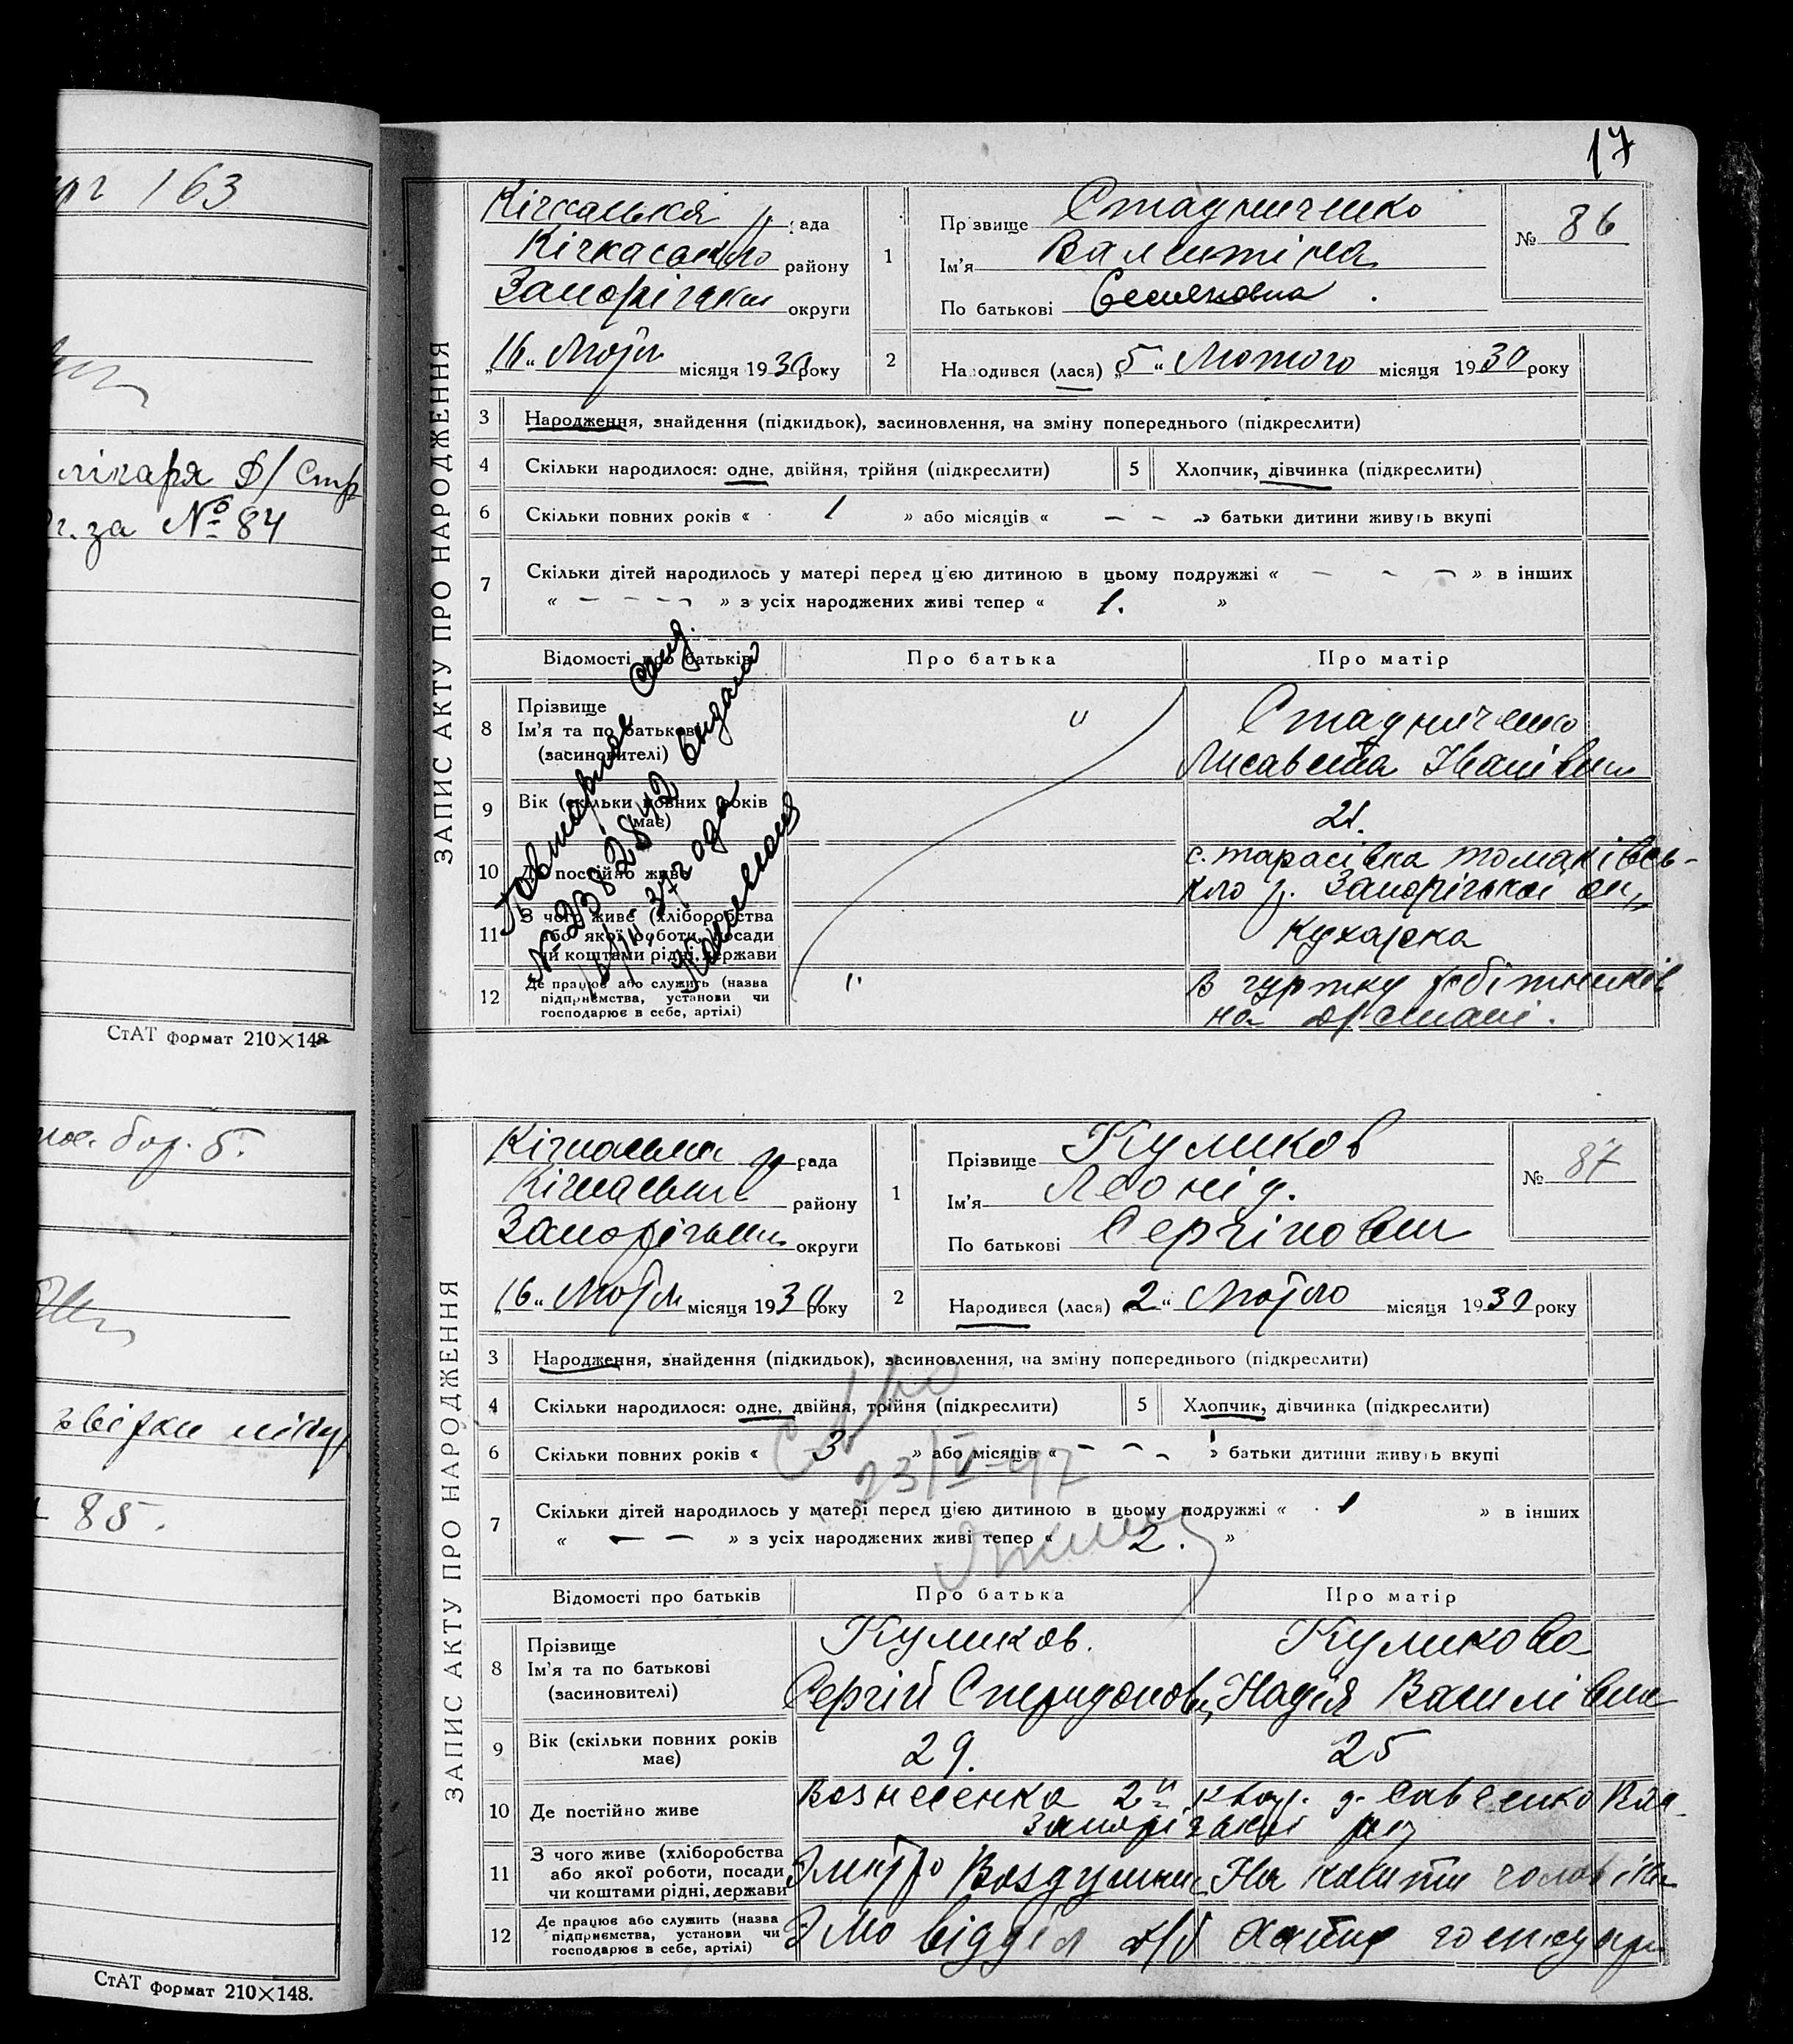 17
163
лікаря Д/ Стр
г. за № 84
СтАТ формат 210×148
бор. 5.
85.
СтАТ формат 210×148.
ЗАПИС АКТУ ПРО НАРОДЖЕННЯ
Кічкаська рада
Кічкаського району
Запорізької округи
„16“ Лютого місяця 1930 року
1
Прізвище Стадниченко
Ім'я Валентіна
По батькові Семеновна
№ 86
2
Народився (лася) „5“ Лютого місяця 1930 року
3 Народження, знайдення (підкидьок), засиновлення, на зміну попереднього (підкреслити)
4 Скільки народилося: одне, двійня, трійня (підкреслити)
5 Хлопчик, дівчинка (підкреслити)
6 Скільки повних років « 1 » або місяців « – – » батьки дитини живуть вкупі
7 Скільки дітей народилось у матері перед цією дитиною в цьому подружжі « – – – » в інших
« – – – – » з усіх народжених живі тепер « 1. »
Відомості про батьків
Про батька
Про матір
8 Прізвище
Ім'я та по батькові
(засиновителі)
"
Стадниченко
Лисавета Іванівна
9 Вік (скільки повних років
має)
21.
10 Де постійно живе
с. тарасівка томаківсь-
кого р. Запорізької ок.
11 З чого живе (хліборобства
або якої роботи, посади
чи коштами рідні, держави
Кухарка
12 Де працює або служить (назва
підприємства, установи чи
господарює в себе, артілі)
"
В гуртку робітників
на
Повторное свид.
№ 238242 выдано
37 года
ЗАПИС АКТУ ПРО НАРОДЖЕННЯ
Кічкаська рада
Кічкаського району
Запорізької округи
„16“ Лютого місяця 1930 року
1
Прізвище Куликов
Ім'я Леонід.
По батькові Сергійович
№ 87
2
Народився (лася) „2“ Лютого місяця 1930 року
3 Народження, знайдення (підкидьок), засиновлення, на зміну попереднього (підкреслити)
4 Скільки народилося: одне, двійня, трійня (підкреслити)
5 Хлопчик, дівчинка (підкреслити)
6 Скільки повних років « 3 » або місяців « – – – » батьки дитини живуть вкупі
7 Скільки дітей народилось у матері перед цією дитиною в цьому подружжі « 1 » в інших
« – – » з усіх народжених живі тепер « 2. »
23/V-47
Відомості про батьків
Про батька
Про матір
8 Прізвище
Ім'я та по батькові
(засиновителі)
Куликов.
Сергій Спиридонов
Куликова
Надія Василівна
9 Вік (скільки повних років
має)
29.
25
10 Де постійно живе
Вознесенка 2й д. Савченко
Запорізької
11 З чого живе (хліборобства
або якої роботи, посади
чи коштами рідні, держави
На кошти чоловіка
12 Де працює або служить (назва
підприємства, установи чи
господарює в себе, артілі)
відділ
Хатня